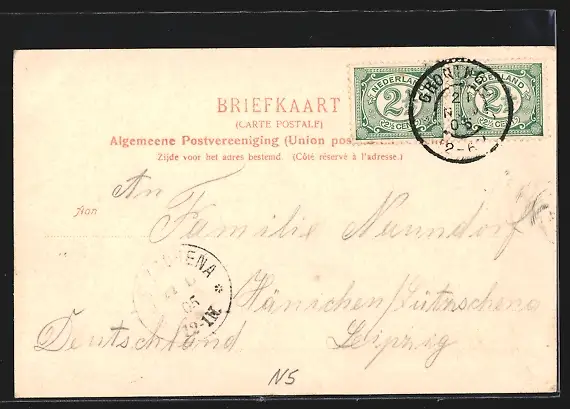 BRIEFKAART
(CARTE POSTALE)
Algemeene Postvereeniging (Union pos
Zijde voor het adres bestemd. (Côté réservé à l'adresse.)
NEDERLAND
2½
2½ CENT
NEDERLAND
2½
CENT
GRONINGEN
05
2-6
An
Aan
Familie Naundorf
Hänichen/Lützschena
Deutschland Leipzig
ENA *
05
12-1N.
N5